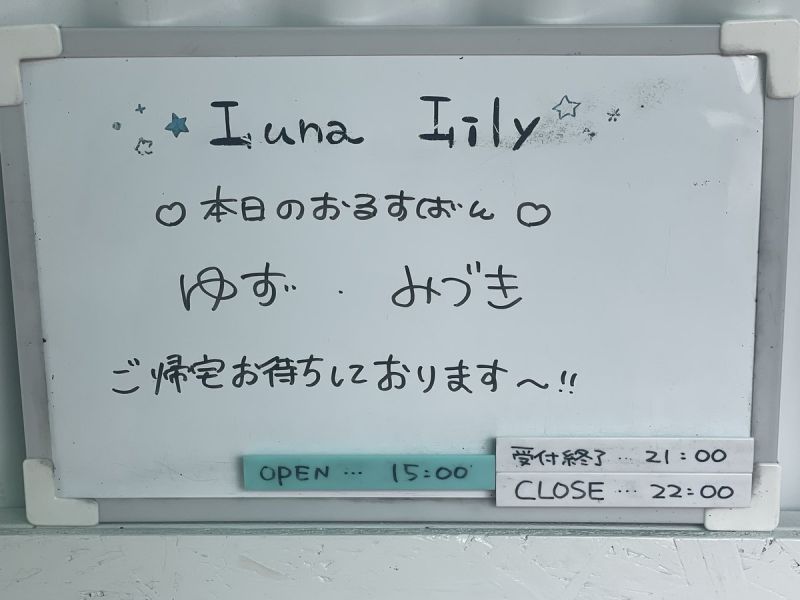 Luna Lily
♡ 本日のおるすばん ♡
ゆず ・ みづき
ご帰宅お待ちしております～!!
OPEN … 15:00
受付終了 … 21:00
CLOSE … 22:00